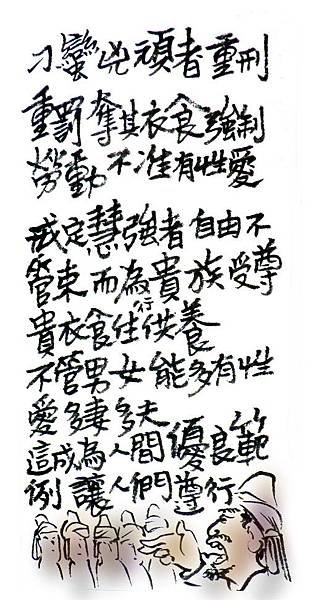 刁蠻凶頑者重刑
重罰奪其衣食強制
勞動不准有性愛
戒定慧強者自由不
管束而為貴族受尊
貴衣食住行供養
不管男女能多有性
愛多妻多夫
這成為人間優良範
例讓人們尊行